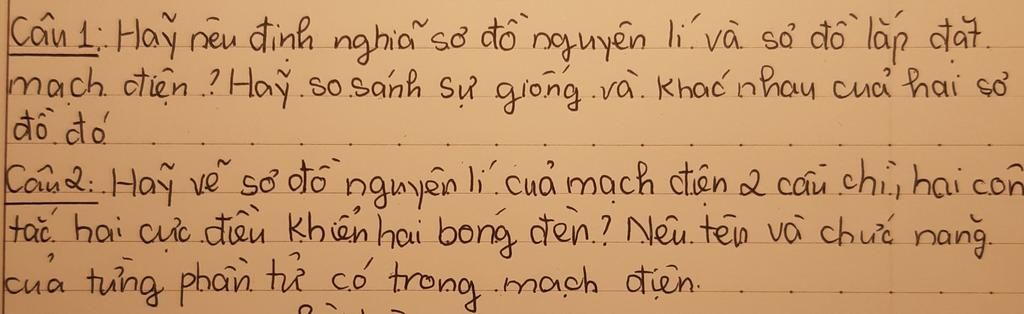 Câu 1: Haỹ nêu định nghiã sơ đồ nguyên lí và sơ đồ lắp đặt
mạch điện? Haỹ so sánh sự giống và khać nhau cuả hai sơ
đồ đó
Câu 2: Haỹ vẽ sơ đồ nguyên lí cuả mạch điện 2 cầu chì, hai côn
tắc hai cực điều khiển hai bóng đèn? Nêu tên và chưć năng
cuả từng phần tử có trong mạch điện.